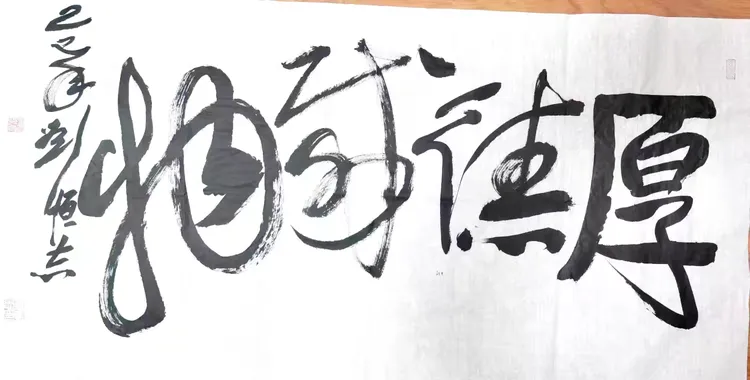 厚德载物
己巳年刘恒志